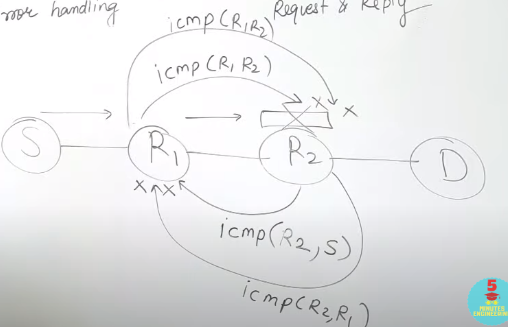 handling
Request & Reply
icmp(R1R2)
icmp(R1R2)
x x
S
R1
R2
D
x x
icmp(R2,S)
icmp(R2,R1)
5
MINUTES
ENGINEERING